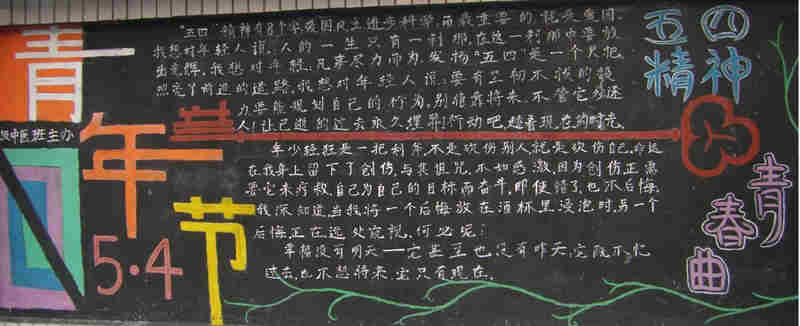 青年节
5·4
中医班主办
五四精神
青春曲
"五四"精神有8个字爱国民主进步科学,而最重要的就是爱国。
我想对年轻人说:人的一生只有一刹那,在这一刹那中要放
出光辉。我想对年轻人,凡事尽力而为,发扬"五四"是一个火把,
照亮了前进的道路,我想对年轻人说:要有百韧不拔的毅
力要能规划自己的行为,别指靠将来,不管它多迷
人!让已逝的过去永久埋葬!行动吧,趁着现在的时光
年少轻狂是一把利斧,不是砍伤别人就是砍伤自己,命运
在我身上留下了创伤,与其诅咒,不如感激,因为创伤正需
要它来疗救,自己为自己的目标而奋斗,即使错了,也不后悔,
我深知道,当我将一个后悔放在酒杯里浸泡时,另一个
后悔正在远处窥视,何必呢!
幸福没有明天——它甚至也没有昨天,它既不忆
过去,也不想将来,它只有现在。